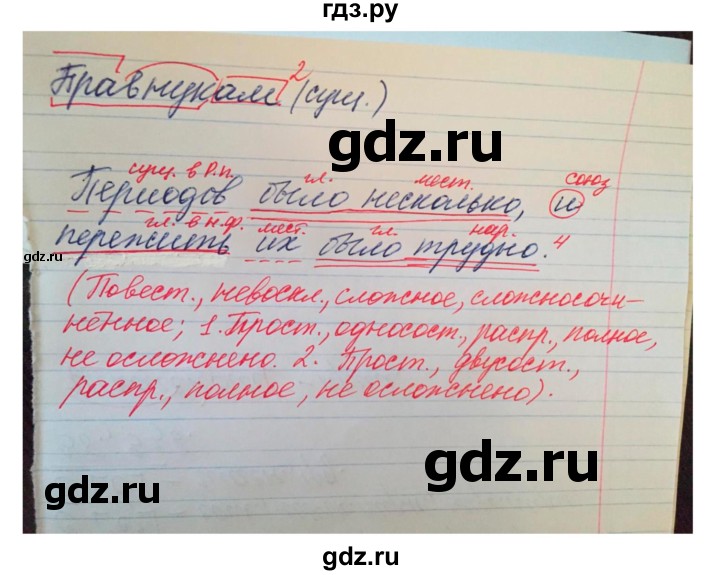 гдз.ру
Правнукам² (сущ.)
gdz.ru
сущ. в Р.п. гл. мест. союз
Периодов было несколько, и
гл. в н.ф. мест. гл. нар.
пережить их было трудно.⁴
(Повест., невоскл., сложное, сложносочи-
нённое; 1. Прост., односост., распр., полное,
не осложнено. 2. Прост., двусост.,
распр., полное, не осложнено).
gdz.ru
gdz.ru
gdz.ru